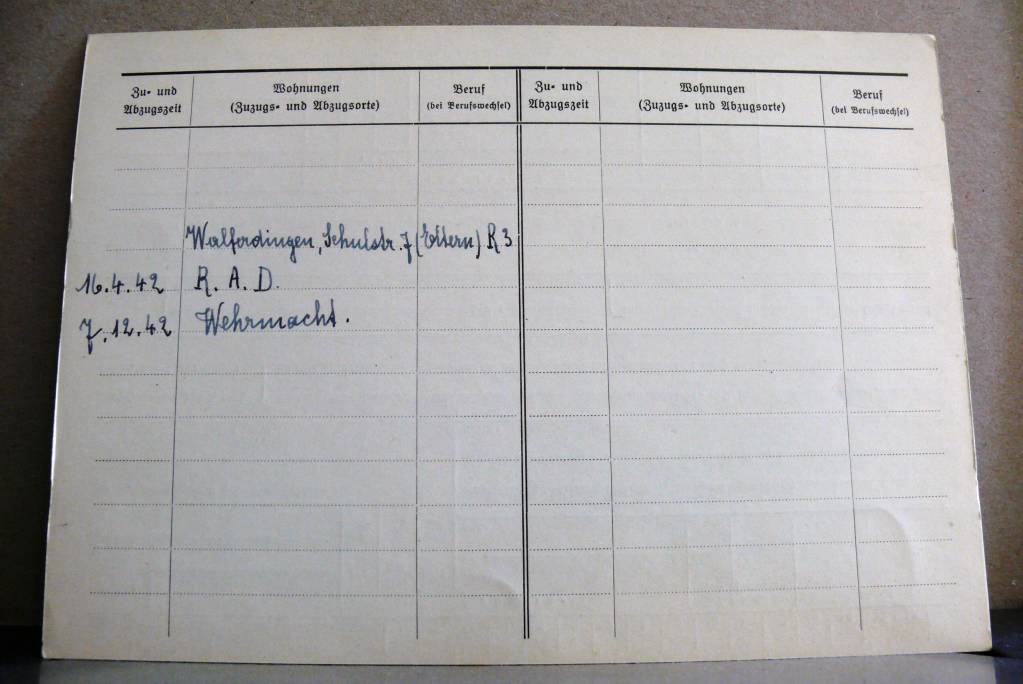 Zu- und Abzugszeit
Wohnungen
(Zuzugs- und Abzugsorte)
Beruf
(bei Berufswechsel)
Zu- und Abzugszeit
Wohnungen
(Zuzugs- und Abzugsorte)
Beruf
(bei Berufswechsel)
Walferdingen, Schulstr. 7 (Eltern) R 3
16.4.42 R. A. D.
7.12.42 Wehrmacht.